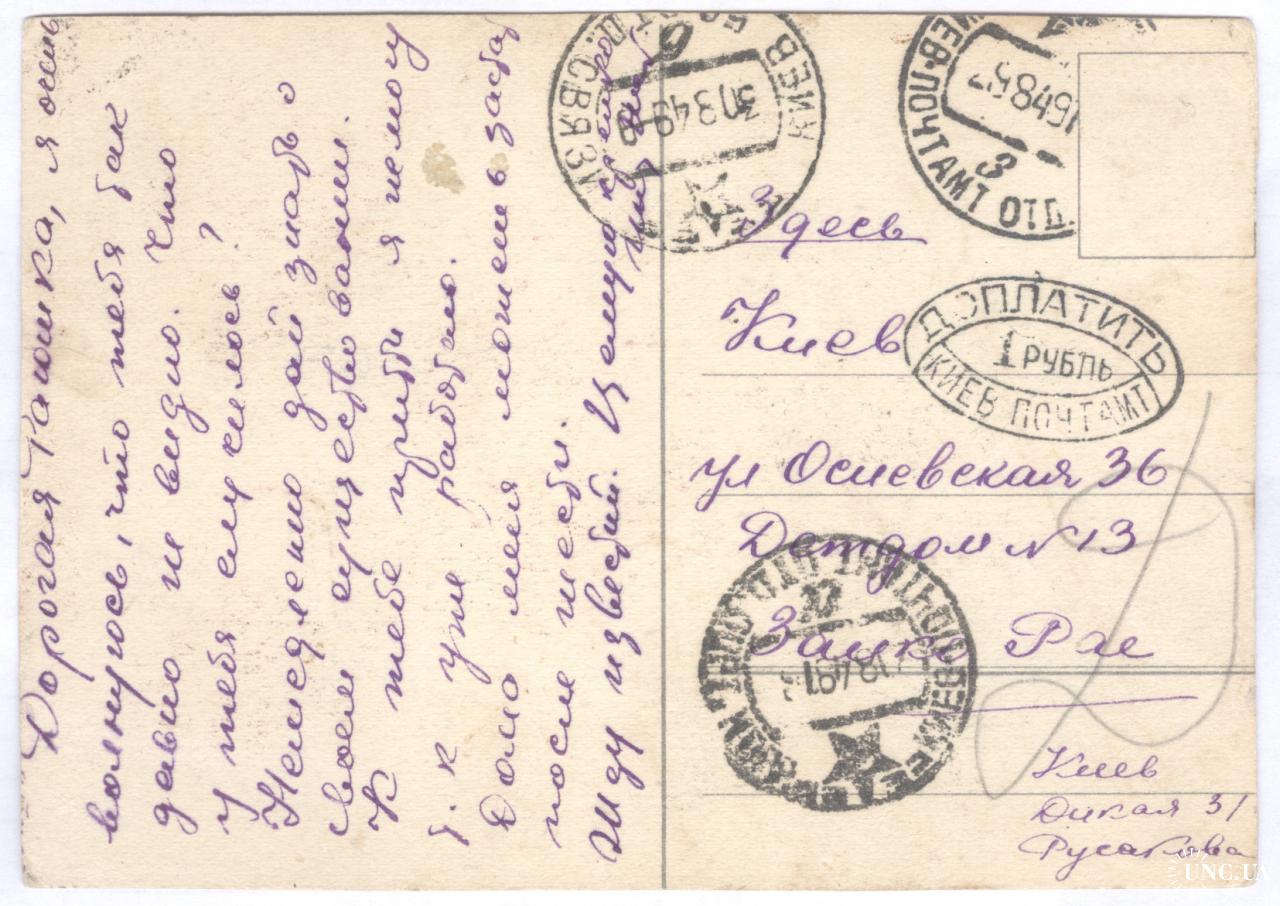 Дорогая Раюшка, я очень
волнуюсь, что тебя так
давно не видно. Что
у тебя случилось?
Немедленно дай знать о
своем существовании.
К тебе прийти я не могу
т. к уже работаю.
Дома меня можешь застать
после шести.
Жду известий. Целую крепко
КИЕВ
30349
СВЯЗИ
КИЕВ-ПОЧТАМТ
3
Здесь
Киев
ДОПЛАТИТЬ
1 РУБЛЬ
КИЕВ ПОЧТАМТ
ул Осиевская 36
Детдом №13
Зашке Рае
Киев
Дикая 31
Русакова
UNC.UA